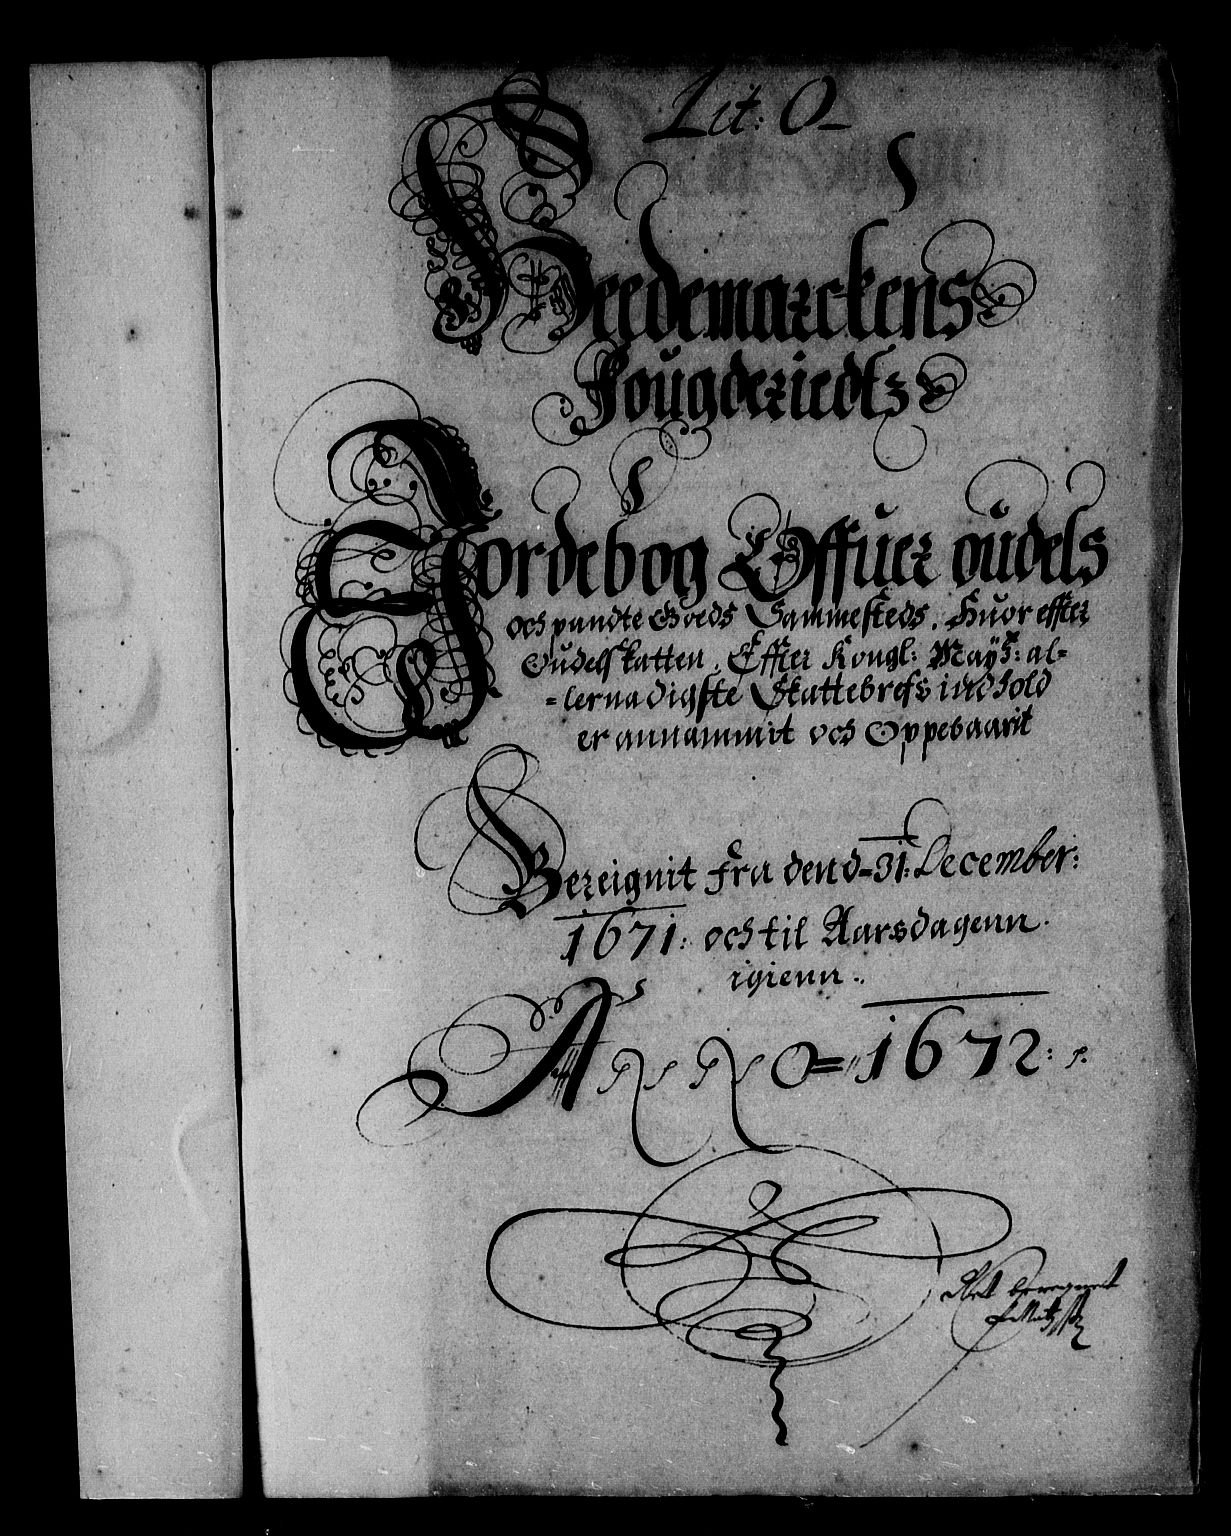 Lit: O
Heedemarckens
Fougderiedtz
Jordebog Offuer oudels
och pandte Goeds Sammesteds. Huor effter
Oudelskatten. Effter Kongl: Mayts: al=
=lernadigste Skattebrefs indhold
er annammit och Oppebaarit
Bereignit fra dend 31: December:
1671: och til Aarsdagenn
igienn.
ANNO= 1672:
Ret beregnet